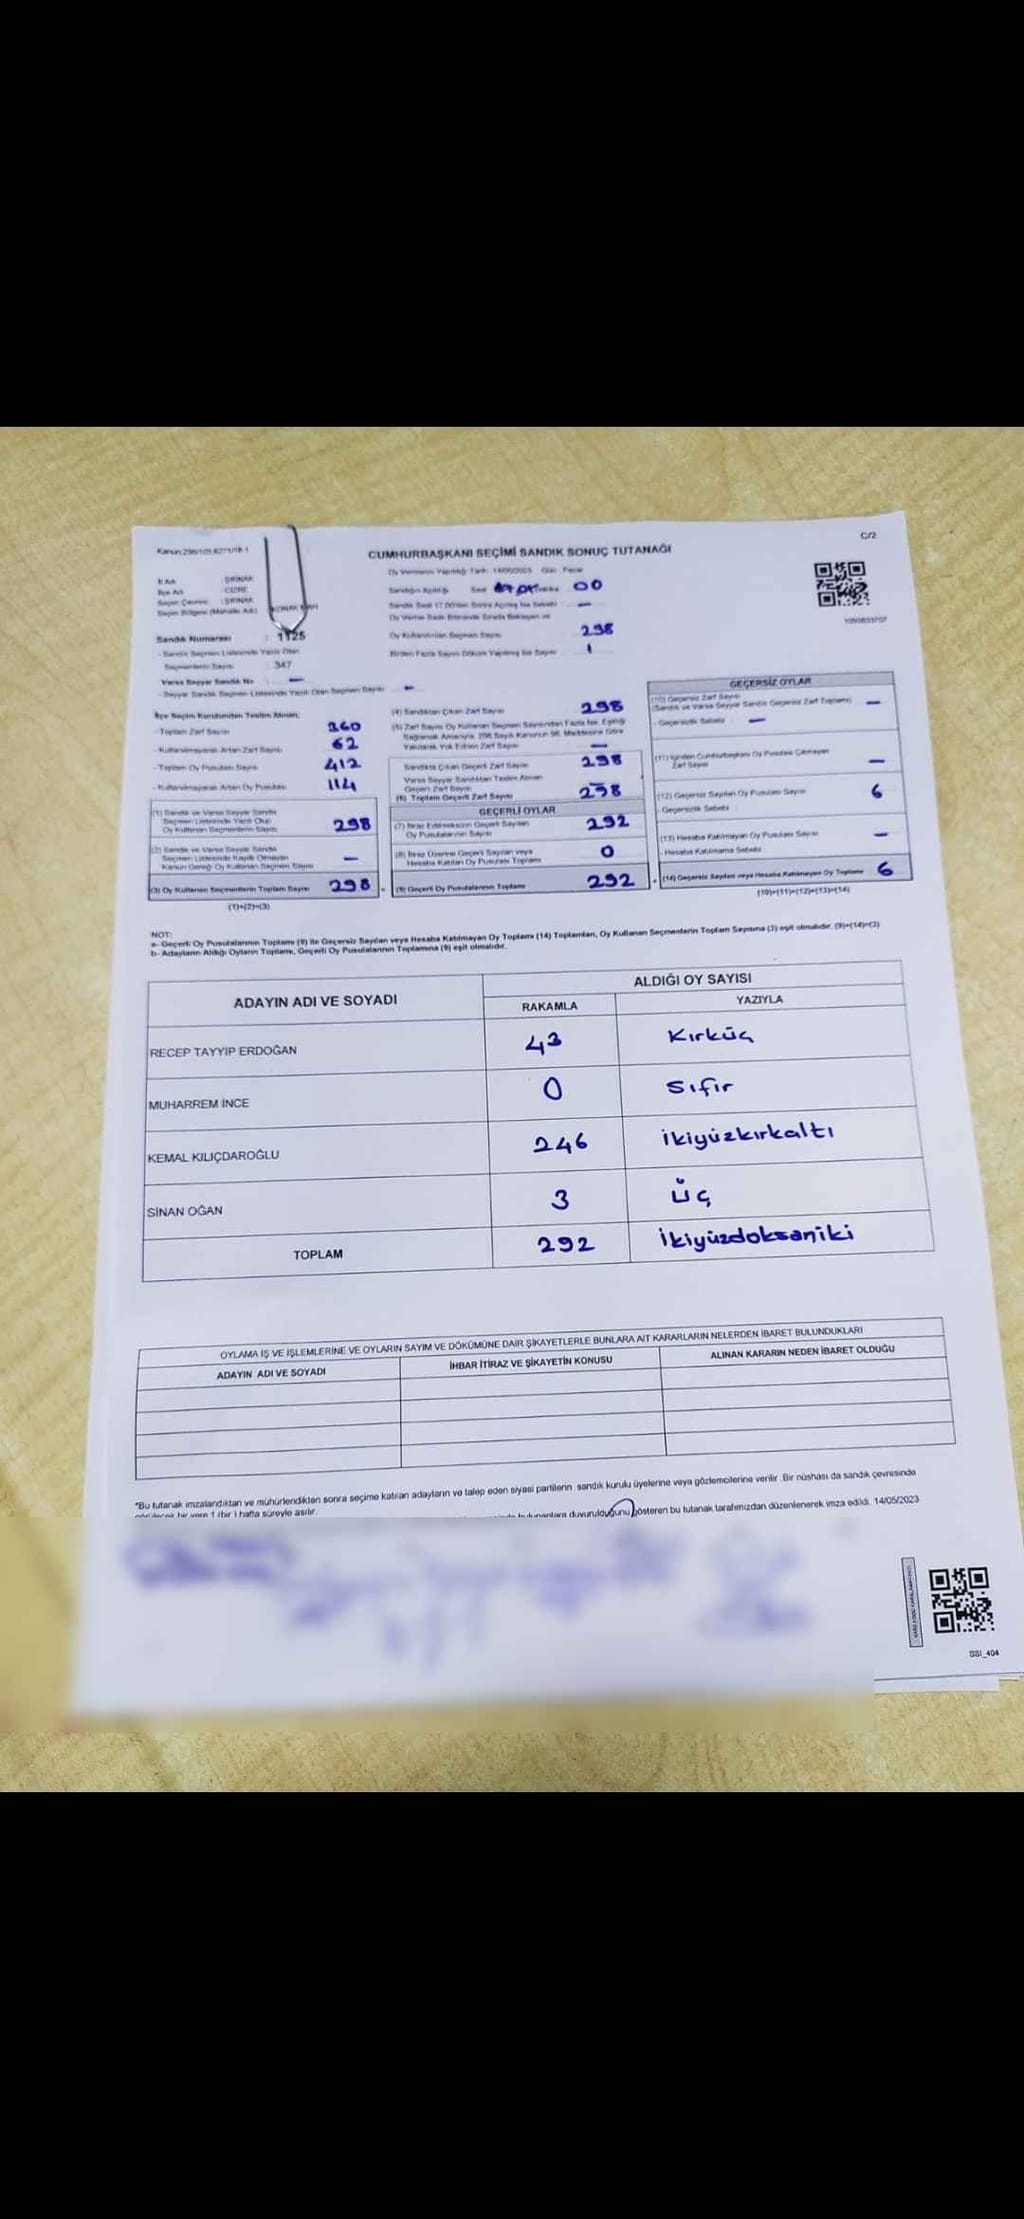 C/2
CUMHURBAŞKANI SEÇİMİ SANDIK SONUÇ TUTANAĞI
Oy Vermenin Yapıldığı Tarih: 14/05/2023 Gün: Pazar
İl Adı : ŞIRNAK
İlçe Adı : CİZRE
Seçim Çevresi : ŞIRNAK
Seçim Bölgesi (Mahalle Adı)
Sandık Numarası : 1125
- Sandık Seçmen Listesinde Yazılı Olan
Seçmenlerin Sayısı : 347
Varsa Seyyar Sandık No : -
- Seyyar Sandık Seçmen Listesinde Yazılı Olan Seçmen Sayısı -
00
Oy Kullanılan Seçmen Sayısı 298
Birden Fazla Sayım Döküm Yapılmış İse Sayısı 1
İlçe Seçim Kurulundan Teslim Alınan;
- Toplam Zarf Sayısı 360
- Kullanılmayarak Artan Zarf Sayısı 62
- Toplam Oy Pusulası Sayısı 412
- Kullanılmayarak Artan Oy Pusulası 114
(1) Sandık ve Varsa Seyyar Sandık
Seçmen Listesinde Yazılı Olup
Oy Kullanan Seçmenlerin Sayısı 298
(2) Sandık ve Varsa Seyyar Sandık
Seçmen Listesinde Kayıtlı Olmayan
Kanun Gereği Oy Kullanan Seçmen Sayısı -
(3) Oy Kullanan Seçmenlerin Toplam Sayısı 298
(1)+(2)=(3)
(4) Sandıktan Çıkan Zarf Sayısı 298
(5) Zarf Sayısı Oy Kullanan Seçmen Sayısından Fazla İse, Eşitliği
Sağlamak Amacıyla, 298 Sayılı Kanunun 98. Maddesine Göre
Yakılarak Yok Edilen Zarf Sayısı -
Sandıkta Çıkan Geçerli Zarf Sayısı 298
Varsa Seyyar Sandıktan Teslim Alınan
Geçerli Zarf Sayısı -
(6) Toplam Geçerli Zarf Sayısı 298
GEÇERLİ OYLAR
(7) İtiraz Edilmeksizin Geçerli Sayılan
Oy Pusulalarının Sayısı 292
(8) İtiraz Üzerine Geçerli Sayılan veya
Hesaba Katılan Oy Pusulası Toplamı 0
(9) Geçerli Oy Pusulalarının Toplamı 292
GEÇERSİZ OYLAR
(10) Geçersiz Zarf Sayısı
(Sandık ve Varsa Seyyar Sandık Geçersiz Zarf Toplamı) -
- Geçersizlik Sebebi -
(11) İçinden Cumhurbaşkanı Oy Pusulası Çıkmayan
Zarf Sayısı -
(12) Geçersiz Sayılan Oy Pusulası Sayısı 6
- Geçersizlik Sebebi
(13) Hesaba Katılmayan Oy Pusulası Sayısı -
- Hesaba Katılmama Sebebi
(14) Geçersiz Sayılan veya Hesaba Katılmayan Oy Toplamı 6
(10)+(11)+(12)+(13)=(14)
NOT:
a- Geçerli Oy Pusulalarının Toplamı (9) ile Geçersiz Sayılan veya Hesaba Katılmayan Oy Toplamı (14) Toplamları, Oy Kullanan Seçmenlerin Toplam Sayısına (3) eşit olmalıdır. (9)+(14)=(3)
b- Adayların Aldığı Oyların Toplamı, Geçerli Oy Pusulalarının Toplamına (9) eşit olmalıdır.
ADAYIN ADI VE SOYADI
ALDIĞI OY SAYISI
RAKAMLA YAZIYLA
RECEP TAYYİP ERDOĞAN 43 Kırküç
MUHARREM İNCE 0 Sıfır
KEMAL KILIÇDAROĞLU 246 ikiyüzkırkaltı
SİNAN OĞAN 3 üç
TOPLAM 292 ikiyüzdoksaniki
OYLAMA İŞ VE İŞLEMLERİNE VE OYLARIN SAYIM VE DÖKÜMÜNE DAİR ŞİKAYETLERLE BUNLARA AİT KARARLARIN NELERDEN İBARET BULUNDUKLARI
ADAYIN ADI VE SOYADI İHBAR İTİRAZ VE ŞİKAYETİN KONUSU ALINAN KARARIN NEDEN İBARET OLDUĞU
*Bu tutanak imzalandıktan ve mühürlendikten sonra seçime katılan adayların ve talep eden siyasi partilerin sandık kurulu üyelerine veya gözlemcilerine verilir. Bir nüshası da sandık çevresinde
görülecek bir yere 1 (bir) hafta süreyle asılır.
duyurulduğunu gösteren bu tutanak tarafımızdan düzenlenerek imza edildi. 14/05/2023
SSI_404